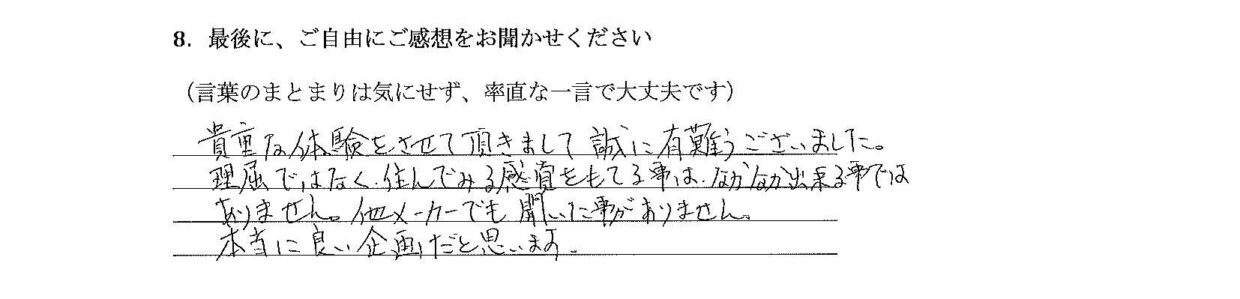 8. 最後に、ご自由にご感想をお聞かせください
（言葉のまとまりは気にせず、率直な一言で大丈夫です）
貴重な体験をさせて頂きまして誠に有難うございました。
理屈ではなく、住んでみる感覚をもてる事は、なかなか出来る事では
ありません。他メーカーでも聞いた事がありません。
本当に良い企画だと思います。